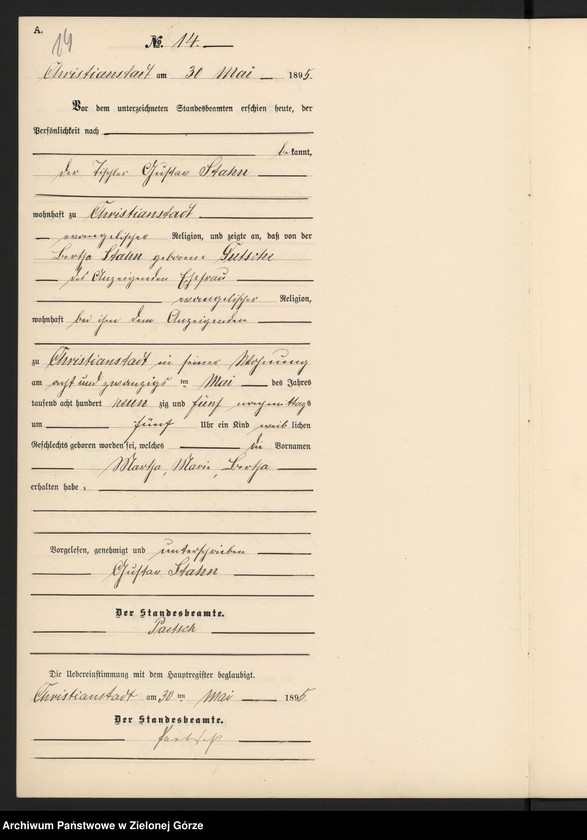 A.
14
No. 14.
Christianstadt am 30 Mai 1895.
Vor dem unterzeichneten Standesbeamten erschien heute, der
Persönlichkeit nach
bekannt,
der Tischler Gustav Stahn
wohnhaft zu Christianstadt
evangelischer Religion, und zeigte an, daß von der
Bertha Stahn geborene Gutsche
des Anzeigenden Ehefrau
evangelischer Religion,
wohnhaft bei ihm dem Anzeigenden
zu Christianstadt in seiner Wohnung
am acht und zwanzigs ten Mai des Jahres
tausend acht hundert neun zig und fünf nachmittags
um fünf Uhr ein Kind weib lichen
Geschlechts geboren worden sei, welches die Vornamen
Martha, Marie, Bertha
erhalten habe.
Vorgelesen, genehmigt und unterschrieben
Gustav Stahn
Der Standesbeamte.
Paetsch
Die Uebereinstimmung mit dem Hauptregister beglaubigt.
Christianstadt am 30 ten Mai 1895.
Der Standesbeamte.
Paetsch
Archiwum Państwowe w Zielonej Górze